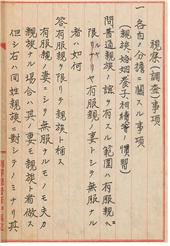 視集(調査)事項
一、各自ノ分擔ニ關スル事項
親族、婚姻、養子、相續等ノ慣習
問 普通親族ノ誼ヲ有スル範圍ハ有服親ニ
限ルヤ有服親ノ妻トシテ無服ナル
者ハ如何
答 有服親ニ限リテ親族ト稱ス
有服親ノ妻ニシテ無服ナルモノモ夫カ
親族ナル場合ハ其ノ妻モ親族ト看做ス
但シ右ハ同姓親族ニ對シテノミナリ其